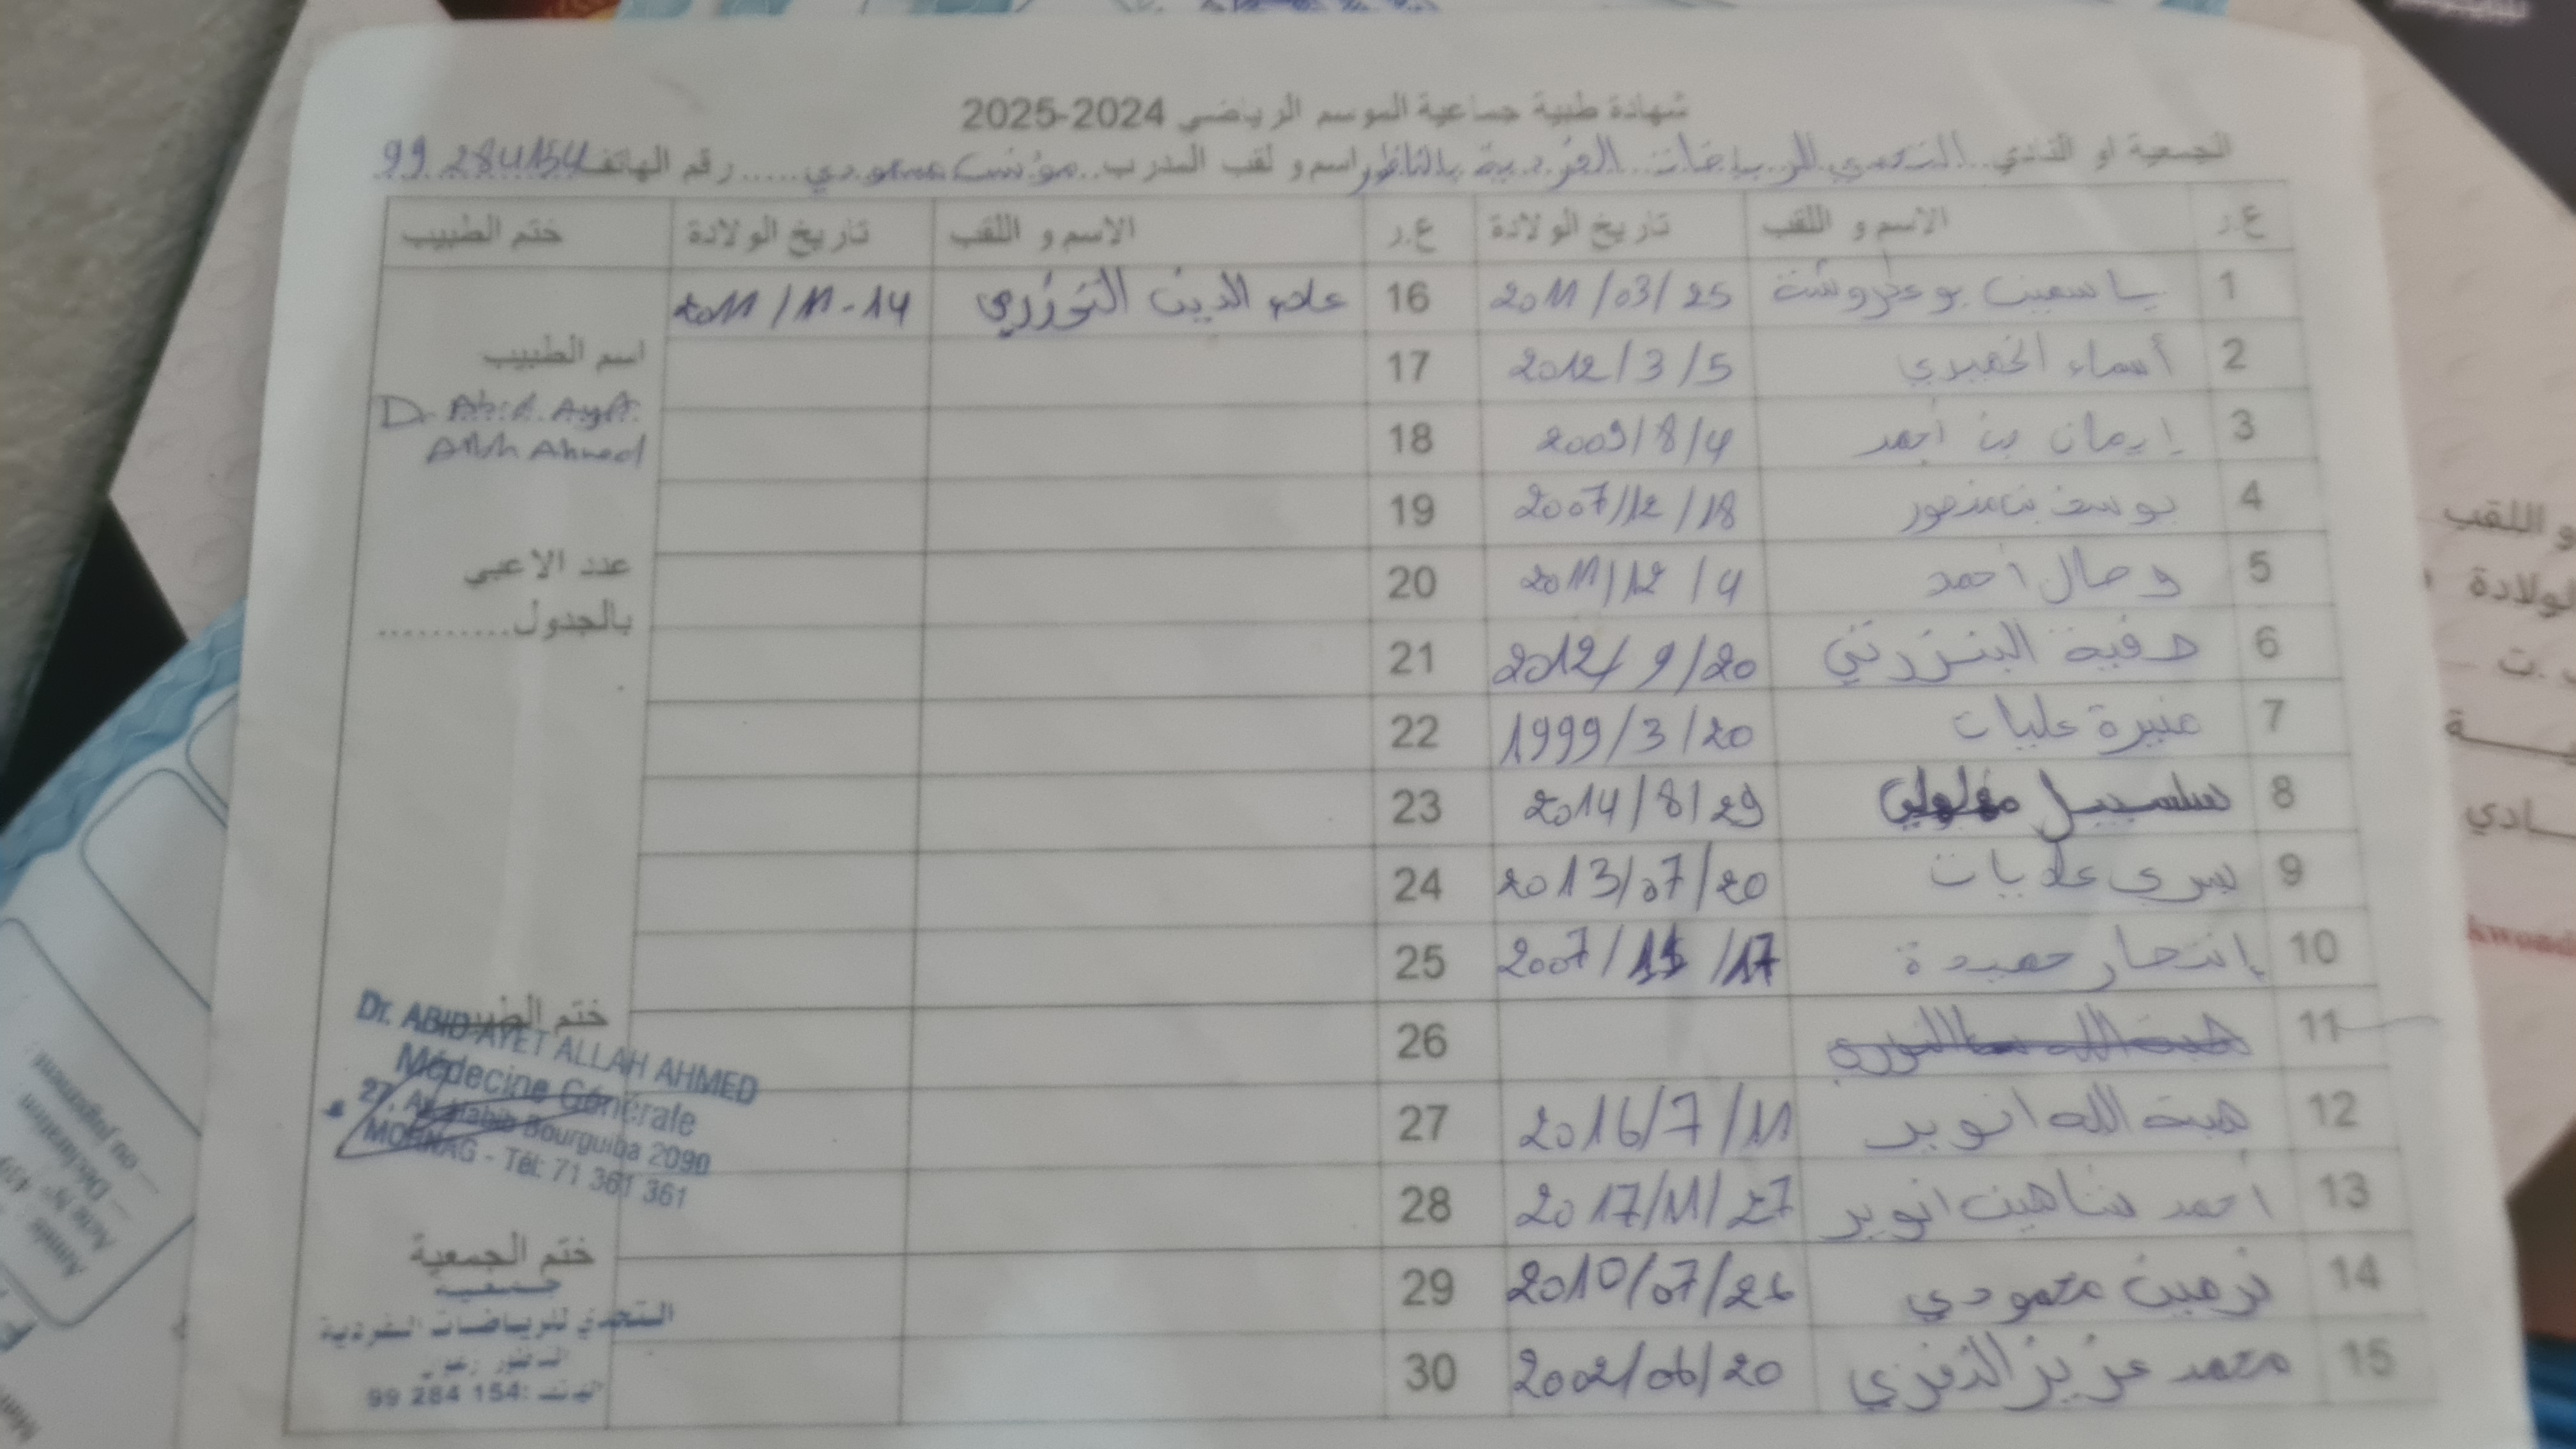 شهادة طبية جماعية الموسم الرياضي 2024-2025
الجمعية او النادي ..التحدي للرياضات الفردية بالناظور اسم و لقب المدرب..مؤنس مسعودي.....رقم الهاتف 99 284154
ع.ر الاسم و اللقب تاريخ الولادة ع.ر الاسم و اللقب تاريخ الولادة ختم الطبيب
1 ياسمين بوعكروشة 2011/03/25 16 علاء الدين التوزري 2011/11-14
2 أسماء الخميري 2012/3/5 17
3 إيمان بن أحمد 2009/8/4 18
4 يوسف بن منصور 2007/12/18 19
5 وصال أحمد 2011/12/4 20
6 صفية البنزرتي 2012/9/20 21
7 منيرة عليات 1999/3/20 22
8 سلسبيل 2014/8/29 23
9 يسرى علايات 2013/07/20 24
10 إنتصار حميدة 2007/11/17 25
11 26
12 هبة الله انوير 2016/7/11 27
13 أحمد شاهين انوير 2017/11/27 28
14 نرمين محمودي 2010/07/26 29
15 محمد عزيز النفزي 2002/06/20 30
اسم الطبيب
Dr. Abid Ayet
Allah Ahmed
عدد الاعبي
بالجدول..........
ختم الطبيب
Dr. ABID AYET ALLAH AHMED
Médecine Générale
27, Av. Habib Bourguiba 2090
MORNAG - Tél: 71 361 361
ختم الجمعية
جمعية
التحدي للرياضات الفردية
الناظور زغوان
الهاتف: 99 284 154
و اللقب